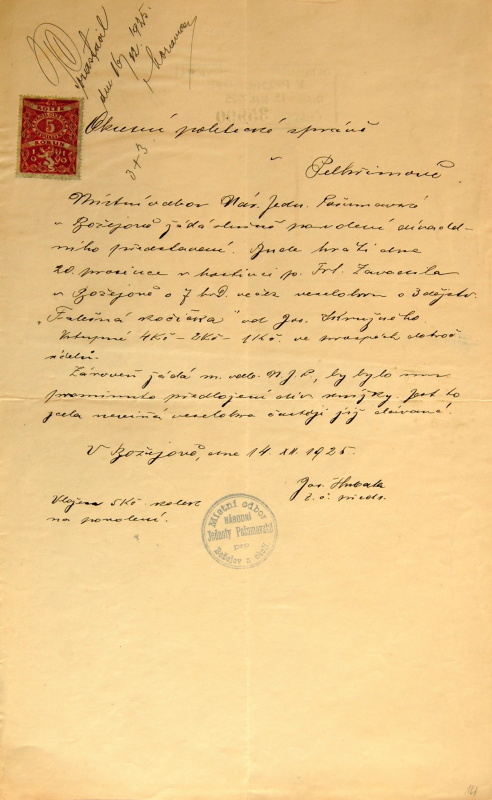 dne 16/12 1925.
KOLEK
5
KORUN
1919
3 + 3
Okresní politické správě
v
Pelhřimově.
Místní odbor Nár. Jedn. Pošumavské
v Božejově žádá slušně povolení divadel-
ního představení. Bude hráti dne
20. prosince v hostinci p. Frt. Zavadila
v Božejově o 7 hod. večer veselohru o 3 dějstv.
"Falešná kočička" od Jos. Skružného
Vstupné 4Kč – 2Kč – 1Kč. ve prospěch dobroč.
údelů.
Zároveň žádá m. odb. N.J.P., by bylo mu
prominuto předložení div. knížky. Jest to
zcela nevinná veselohra častěji již dávaná.
V Božejově, dne 14. XII. 1925.
Jos. Hubal
t. č. předs.
Vložen 5Kč kolek
na povolení.
Místní odbor
NÁRODNÍ
Jednoty Pošumavské
pro
Božejov a okolí